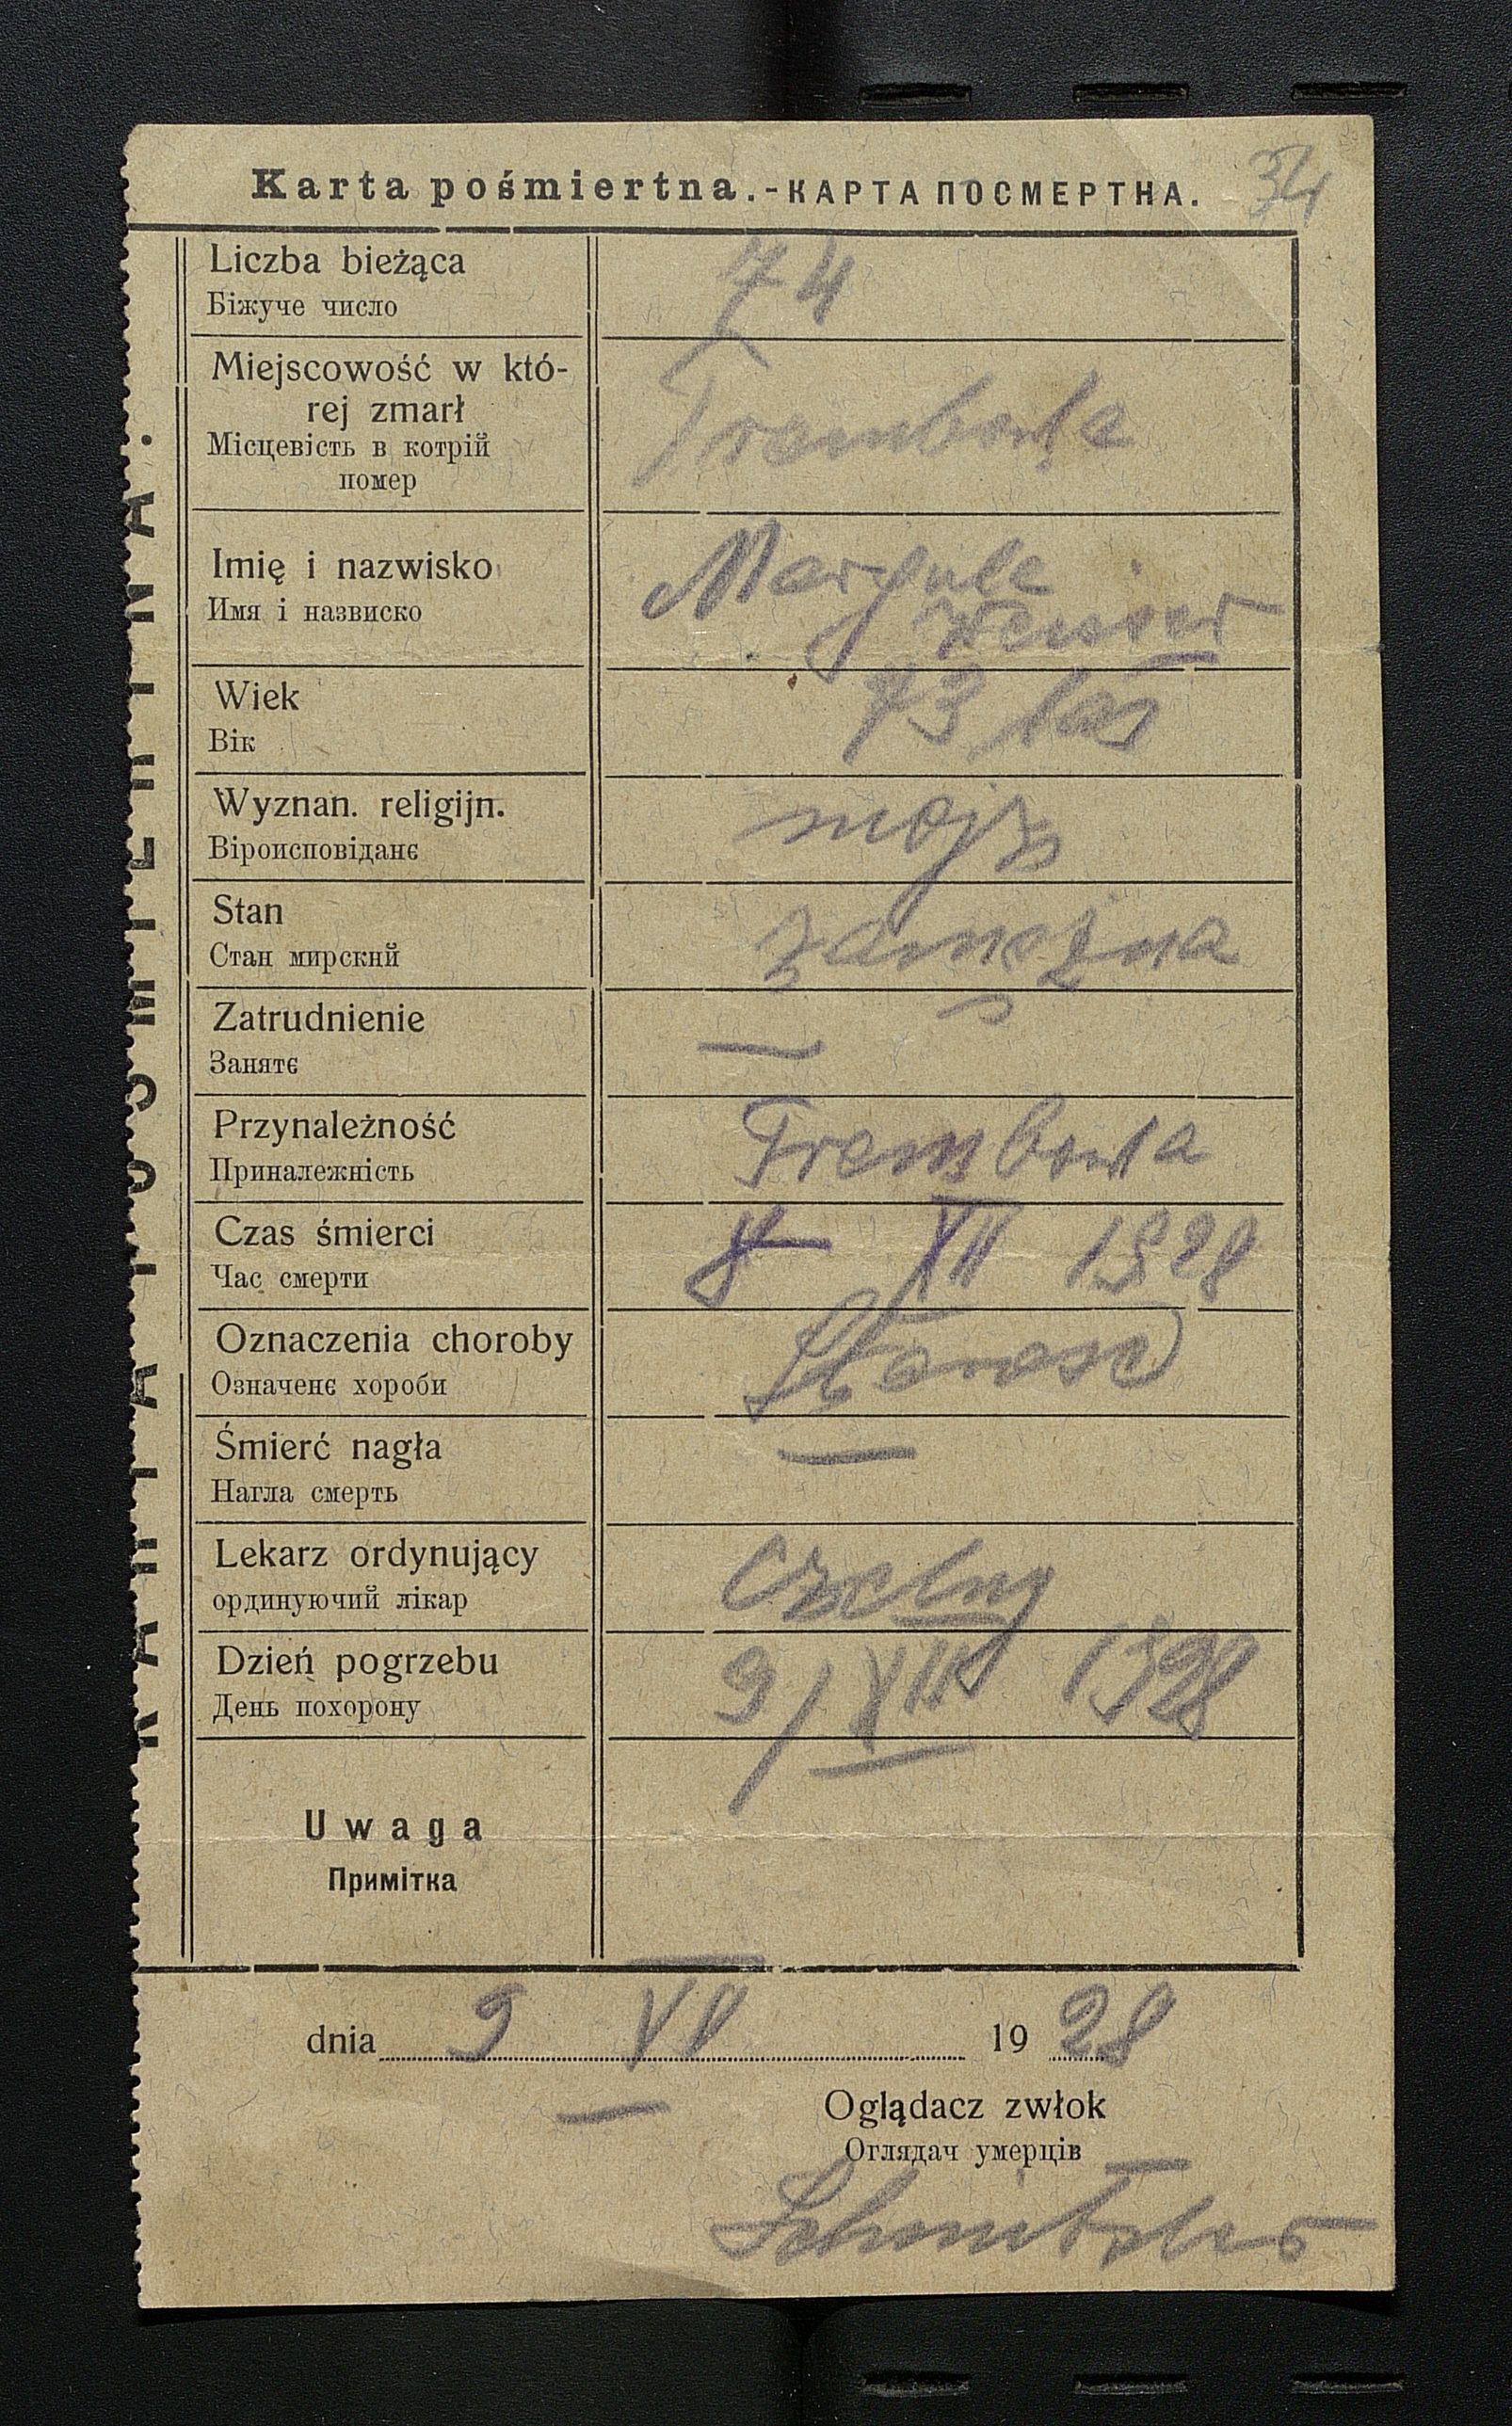 Karta pośmiertna.-КАРТА ПОСМЕРТНА.
34
Liczba bieżąca
Біжуче число
74
Miejscowość w któ-
rej zmarł
Місцевість в котрій
помер
Trembowla
Imię i nazwisko
Имя і назвиско
Margule
Wiek
Вік
73 lat
Wyznan. religijn.
Віроисповіданє
mojż
Stan
Стан мирский
zamężna
Zatrudnienie
Занятє
—
Przynależność
Приналежність
Trembowla
Czas śmierci
Час смерти
8 XII 1928
Oznaczenia choroby
Означенє хороби
Starość
Śmierć nagła
Нагла смерть
—
Lekarz ordynujący
ординуючий лікар
Dzień pogrzebu
День похорону
9/XII 1928
Uwaga
Примітка
dnia 9 19 28
Oglądacz zwłok
Оглядач умерців
КАРТА ПОСМЕРТНА.